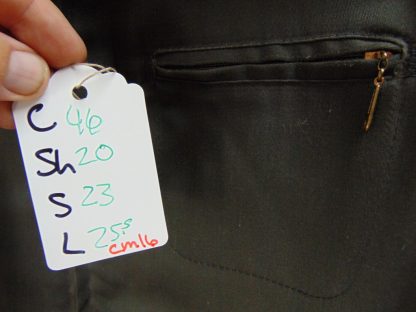 C 46
Sh 20
S 23
L 25.5
cm16